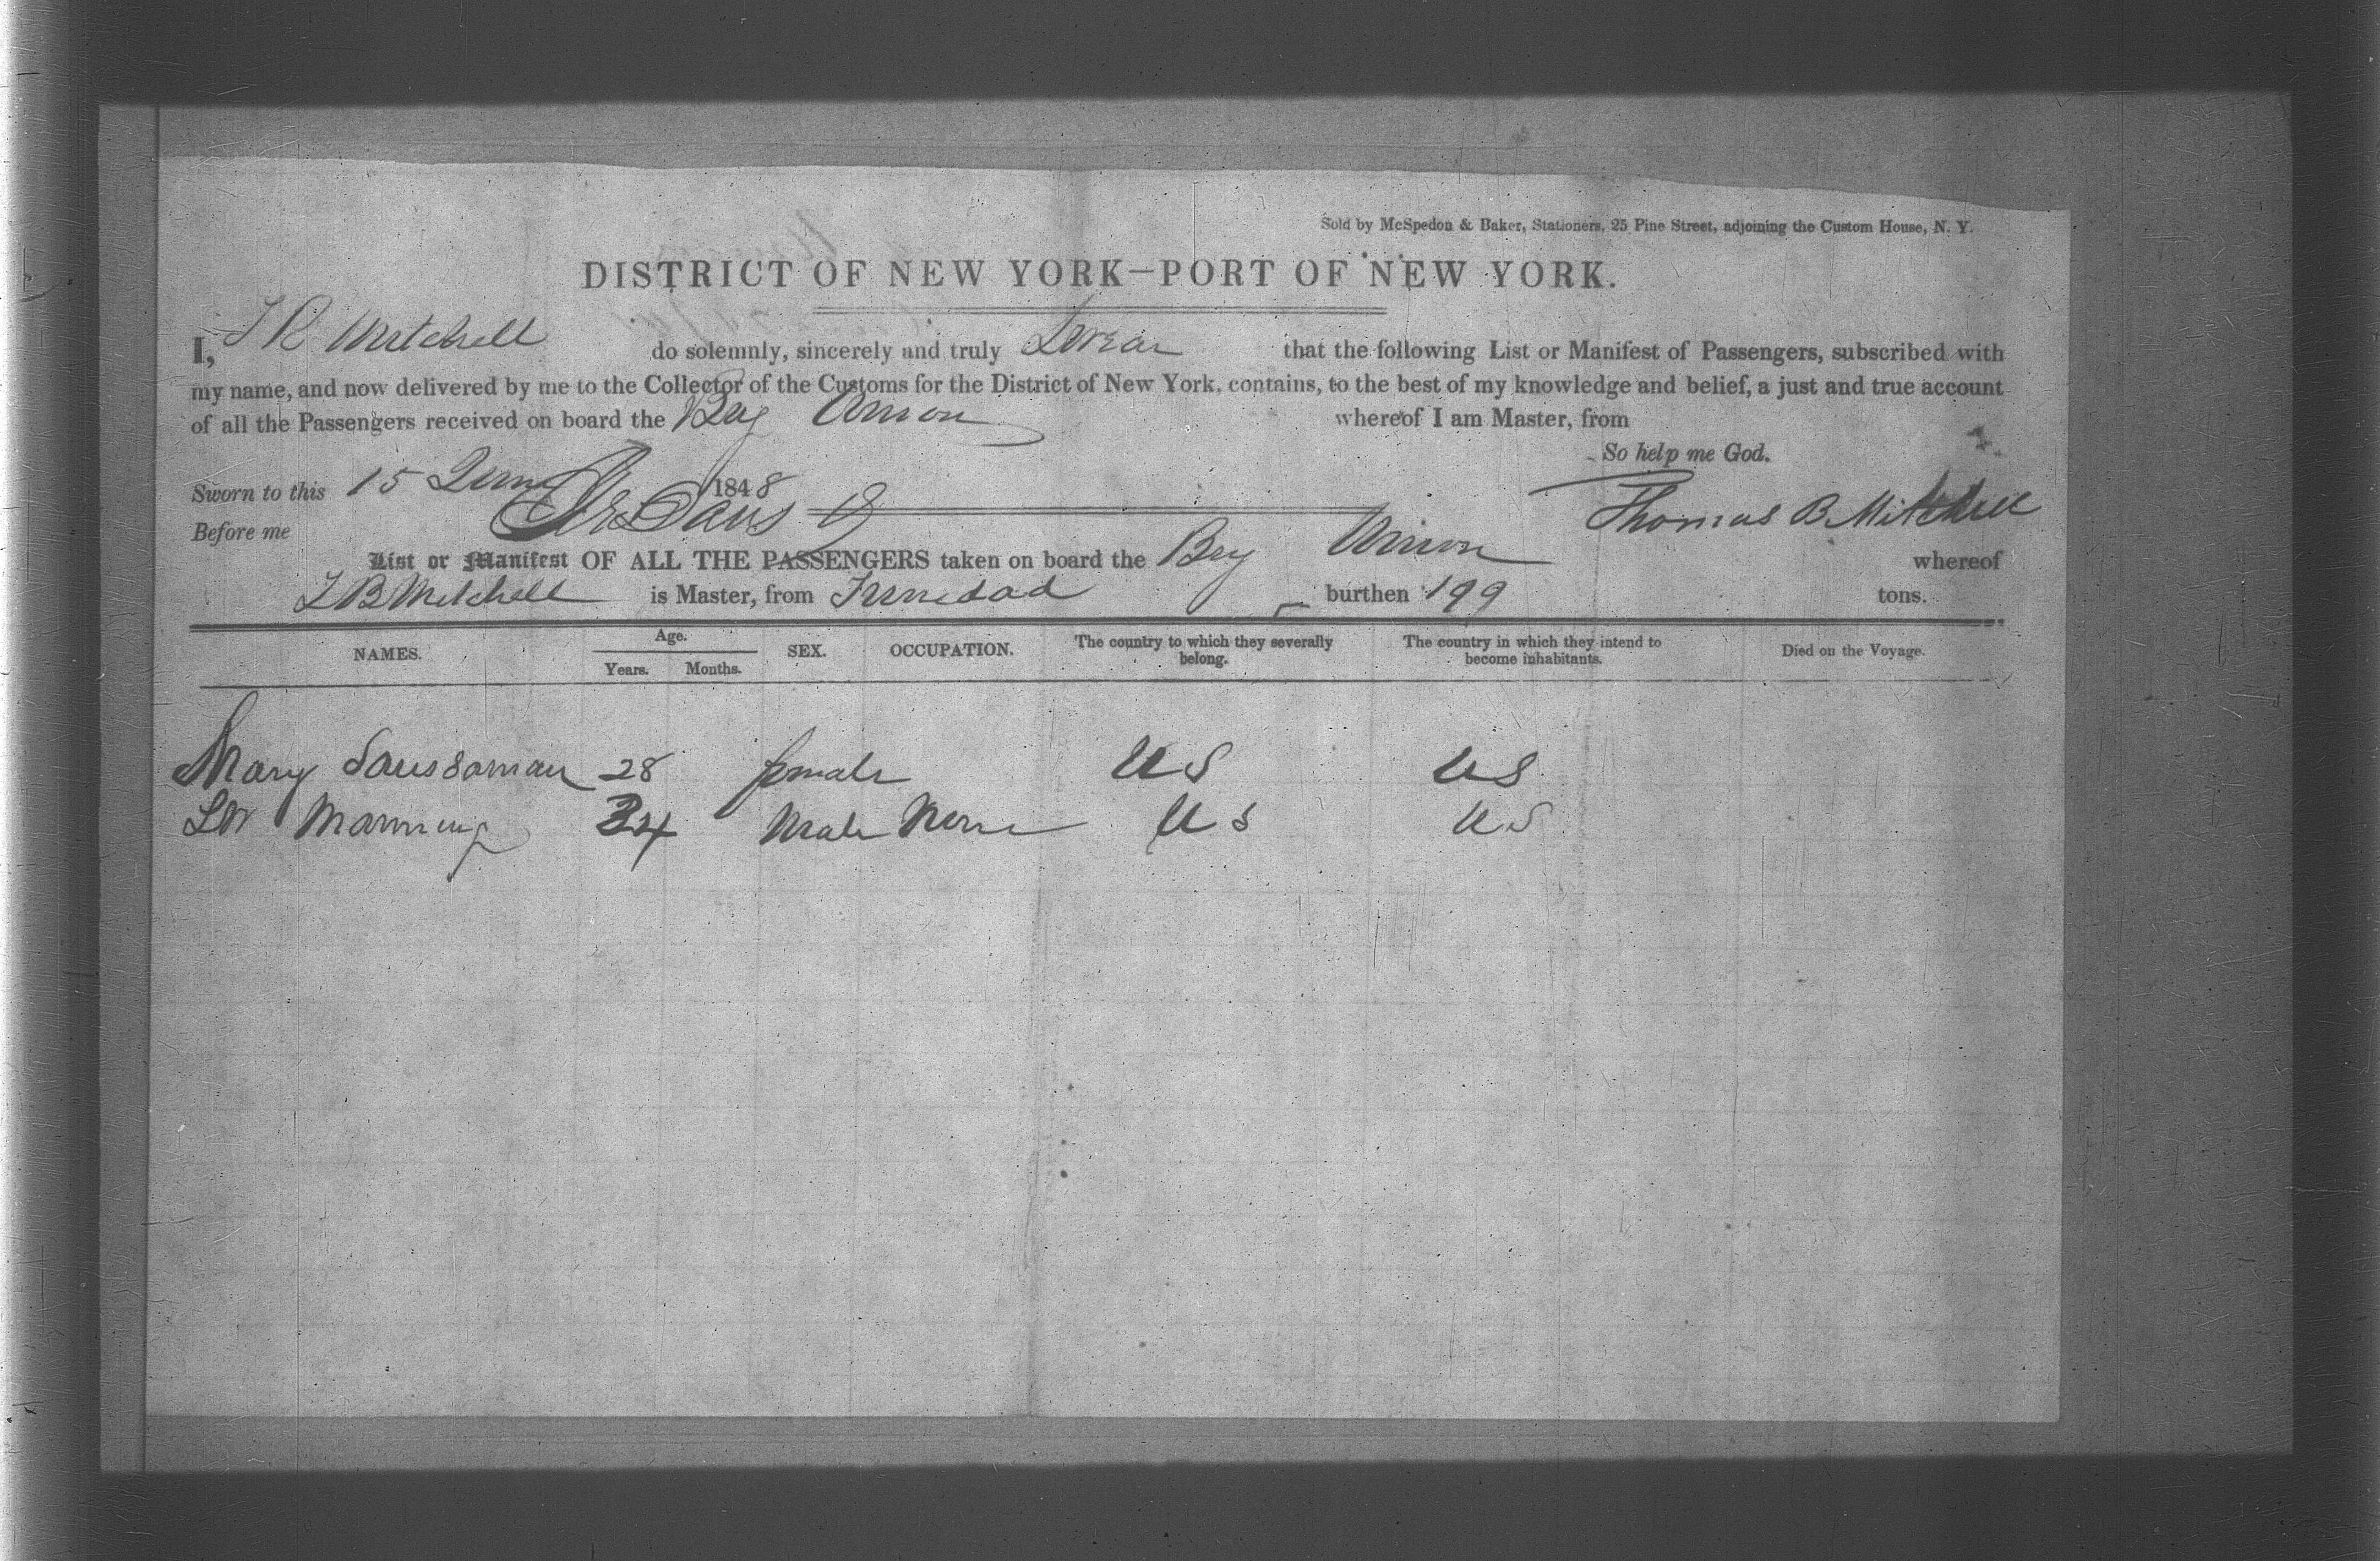 Sold by McSpedon & Baker, Stationers, 25 Pine Street, adjoining the Custom House, N. Y.
DISTRICT OF NEW YORK—PORT OF NEW YORK.
I, T B Mitchell do solemnly, sincerely and truly Swear that the following List or Manifest of Passengers, subscribed with
my name, and now delivered by me to the Collector of the Customs for the District of New York, contains, to the best of my knowledge and belief, a just and true account
of all the Passengers received on board the Brig Union whereof I am Master, from
So help me God.
Sworn to this 15 June 1848
Thomas B Mitchell
Before me
List or Manifest OF ALL THE PASSENGERS taken on board the Brig Union whereof
T B Mitchell is Master, from Trinidad burthen 199 tons.
NAMES. Age. Years. Months. SEX. OCCUPATION. The country to which they severally belong. The country in which they intend to become inhabitants. Died on the Voyage.
Mary 28 female US US
Manning 34 Male None US US